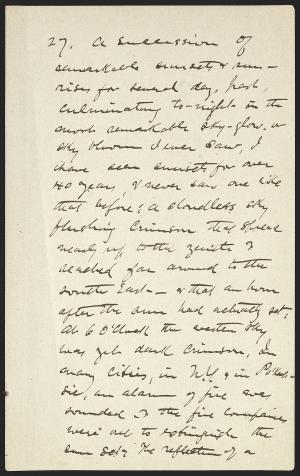 27. A succession of
remarkable sunsets & sun-
rises for several days past,
culminating to-night in the
most remarkable sky-glow or
sky bloom I ever saw, I
have seen sunsets for over
40 years, & never saw one like
that before; a cloudless sky
flushing crimson that spread
nearly up to the zenith &
reached far around to the
south East — & that an hour
after the sun had actually set,
At 6 O'clock the western sky
was yet dark crimson, In
many cities, in N.Y. & in Pokeep-
sie, an alarm of fire was
sounded & the fire companies
were out to extinguish the
sun set. The reflection of a